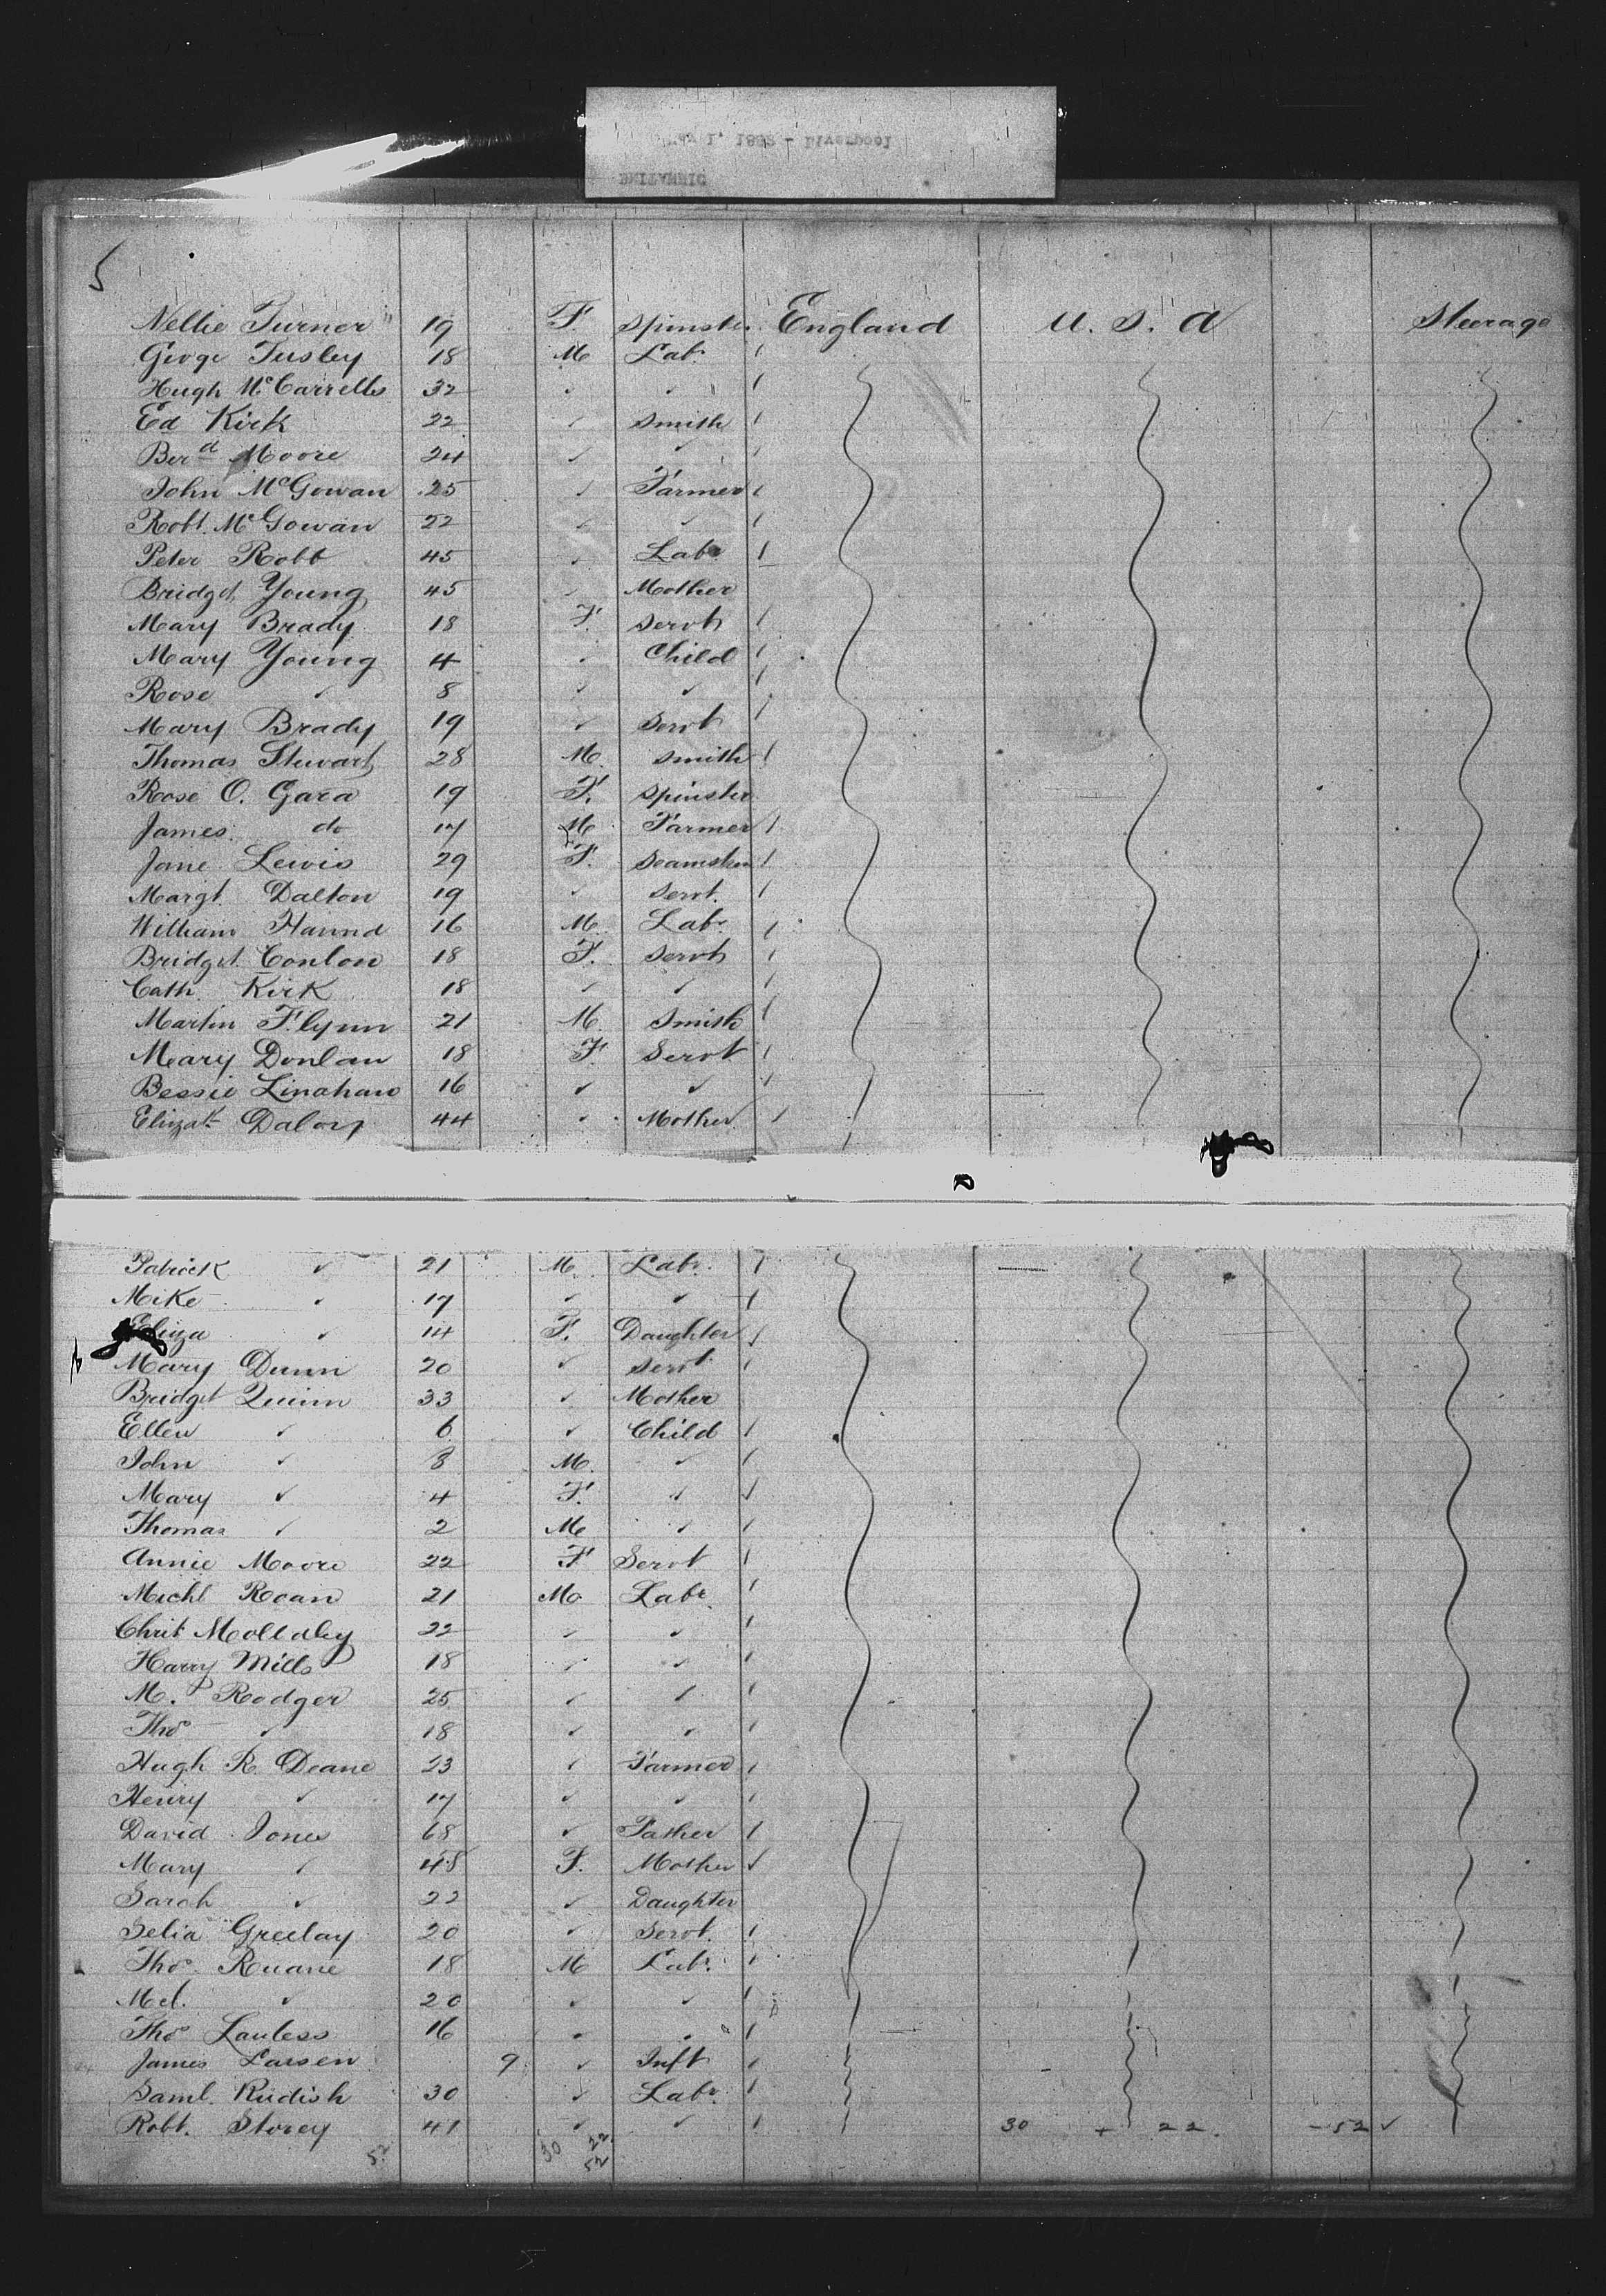 May 1, 1882 - Liverpool
BRITANNIC
5
Nellie Turner " 19 F. Spinster England U. S. A Steerage
George Tusley 18 M Labr
Hugh McCarrells 32 ✓ ✓
Ed Kirk 22 ✓ Smith
Berd Moore 24 ✓ ✓
John McGowan 25 ✓ Farmer
Robt. McGowan 22 ✓ ✓
Peter Robb 45 ✓ Labr
Bridget Young 45 ✓ Mother
Mary Brady 18 F. Servt
Mary Young 4 ✓ Child
Rose ✓ 8 ✓ ✓
Mary Brady 19 ✓ Servt
Thomas Stewart 28 M. Smith
Rose O. Gara 19 F. Spinster
James do 17 M Farmer
Jane Lewis 29 F. Seamstress
Margt. Dalton 19 ✓ Servt.
William Hannd 16 M. Labr
Bridget Conlon 18 F. Servt
Cath. Kirk 18 ✓ ✓
Martin Flynn 21 M. Smith
Mary Donlan 18 F Servt
Bessie Linahan 16 ✓ ✓
Elizath Daloy 44 ✓ Mother
Patrick ✓ 21 M. Labr.
Mike ✓ 17 ✓ ✓
Eliza ✓ 14 F. Daughter
Mary Dunn 20 ✓ Servt.
Bridget Quinn 33 ✓ Mother
Ellen ✓ 6 ✓ Child
John ✓ 8 M. ✓
Mary ✓ 4 F. ✓
Thomas ✓ 2 M ✓
Annie Moore 22 F Servt
Michl Roan 21 M. Labr.
Christ Molloley 22 ✓ ✓
Harry Mills 18 ✓ ✓
M. Rodger 25 ✓ ✓
Thos ✓ 18 ✓ ✓
Hugh R. Deane 23 ✓ Farmer
Henry ✓ 17 ✓ ✓
David Jones 68 ✓ Father
Mary ✓ 48 F. Mother
Sarah ✓ 22 ✓ Daughter
Selia Greelay 20 ✓ Servt.
Thos. Ruane 18 M Labr.
Ml. ✓ 20 ✓ ✓
Thos Lauless 16 ✓ ✓
James Larsen 9 ✓ Inft
Saml. Rudish 30 ✓ Labr.
Robt. Storey 41 ✓ ✓ 30 + 22. - 52 ✓
52 30 22
52